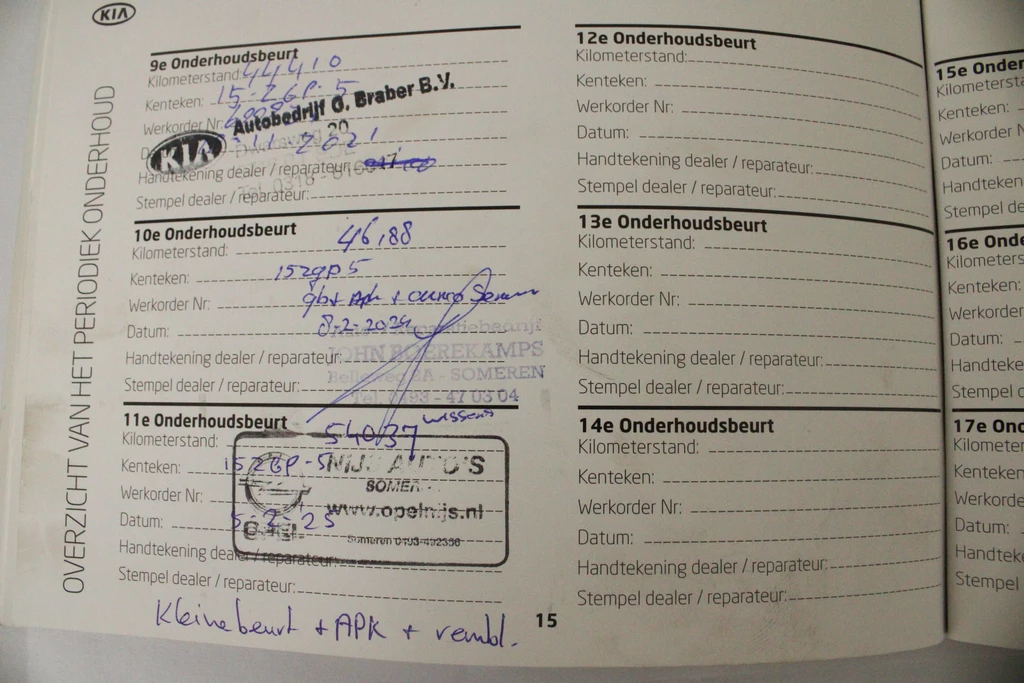 KIA
OVERZICHT VAN HET PERIODIEK ONDERHOUD
9e Onderhoudsbeurt
Kilometerstand: 44410
Kenteken: 15-ZGP-5
Werkorder Nr:
Autobedrijf G. Braber B.V.
KIA
20
11-2021
Handtekening dealer / reparateur:
Stempel dealer / reparateur:
10e Onderhoudsbeurt
Kilometerstand: 46,88
Kenteken: 15zgp5
Werkorder Nr: gb+ Apk +
Datum: 8-2-2024
Handtekening dealer / reparateur:
JOHN BOEREKAMPS
Stempel dealer / reparateur:
Belleweg 2A - SOMEREN
Tel. 0493 - 47 03 04
11e Onderhoudsbeurt
Kilometerstand: 54037
Kenteken: 15ZGP-5
NIJS AUTO'S
Werkorder Nr:
SOMEREN
www.opelnijs.nl
Datum: 5-2-25
OPEL
Someren 0493-492336
Handtekening dealer / reparateur:
Stempel dealer / reparateur:
Kleine beurt + APK + rembl.
15
12e Onderhoudsbeurt
Kilometerstand:
Kenteken:
Werkorder Nr:
Datum:
Handtekening dealer / reparateur:
Stempel dealer / reparateur:
13e Onderhoudsbeurt
Kilometerstand:
Kenteken:
Werkorder Nr:
Datum:
Handtekening dealer / reparateur:
Stempel dealer / reparateur:
14e Onderhoudsbeurt
Kilometerstand:
Kenteken:
Werkorder Nr:
Datum:
Handtekening dealer / reparateur:
Stempel dealer / reparateur:
15e Onder
Kilometersta
Kenteken:
Werkorder N
Datum:
Handteken
Stempel de
16e Onde
Kilometers
Kenteken:
Werkorder
Datum:
Handteke
Stempel d
17e Ond
Kilometer
Kenteken
Werkorde
Datum:
Handtek
Stempel